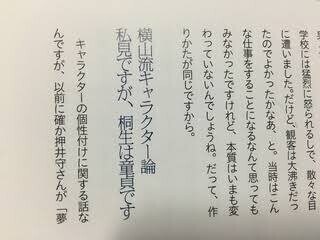 学校には猛烈に怒られるしで、散々な目
に遭いました。だけど、観客は大沸きだっ
たのでよかったかなあ、と。当時はこん
な仕事をすることになるなんて思っても
みなかったですけれど、本質はいまも変
わっていないんでしょうね。だって、作
りかたが同じですから。
横山流キャラクター論
私見ですが、桐生は童貞です
キャラクターの個性付けに関する話な
んですが、以前に確か押井守さんが「夢